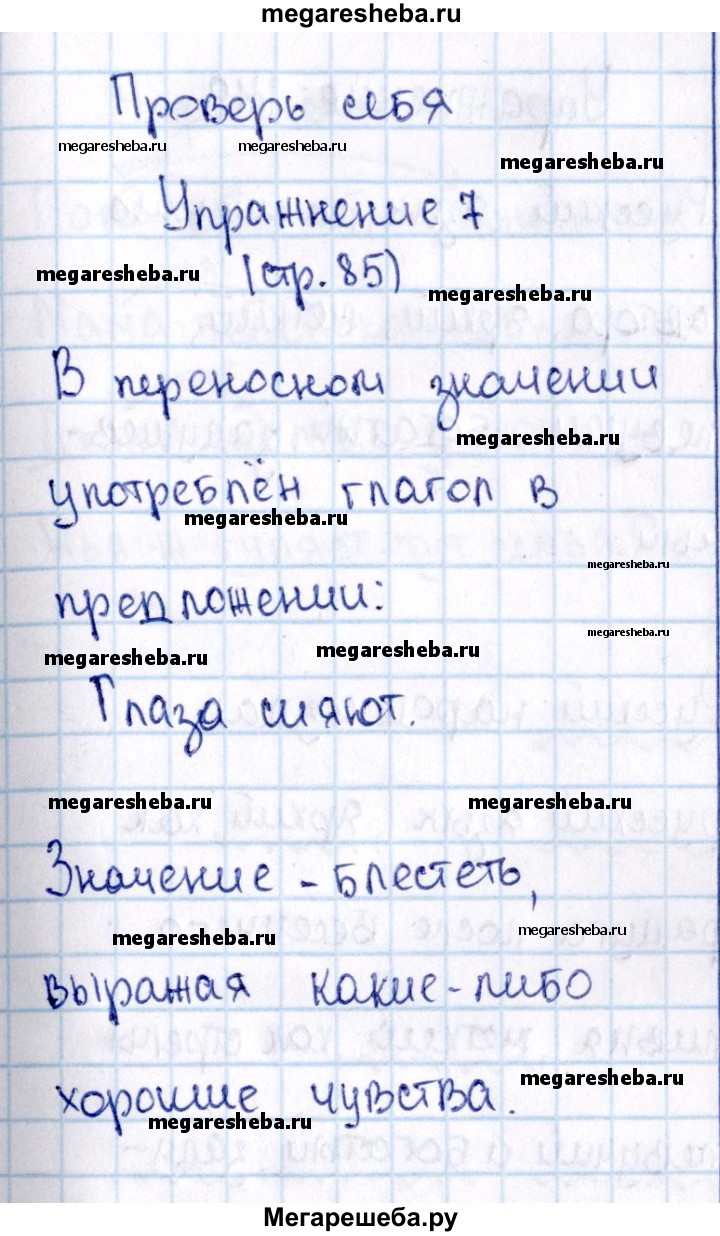 megaresheba.ru
Проверь себя
megaresheba.ru megaresheba.ru megaresheba.ru
Упражнение 7
megaresheba.ru (стр. 85) megaresheba.ru
В переносном значении
megaresheba.ru
употреблён глагол в
megaresheba.ru
megaresheba.ru
предложении:
megaresheba.ru
megaresheba.ru megaresheba.ru
Глаза сияют.
megaresheba.ru megaresheba.ru
Значение - блестеть,
megaresheba.ru megaresheba.ru
выражая какие-либо
megaresheba.ru
хорошие чувства.
megaresheba.ru
Мегарешеба.ру